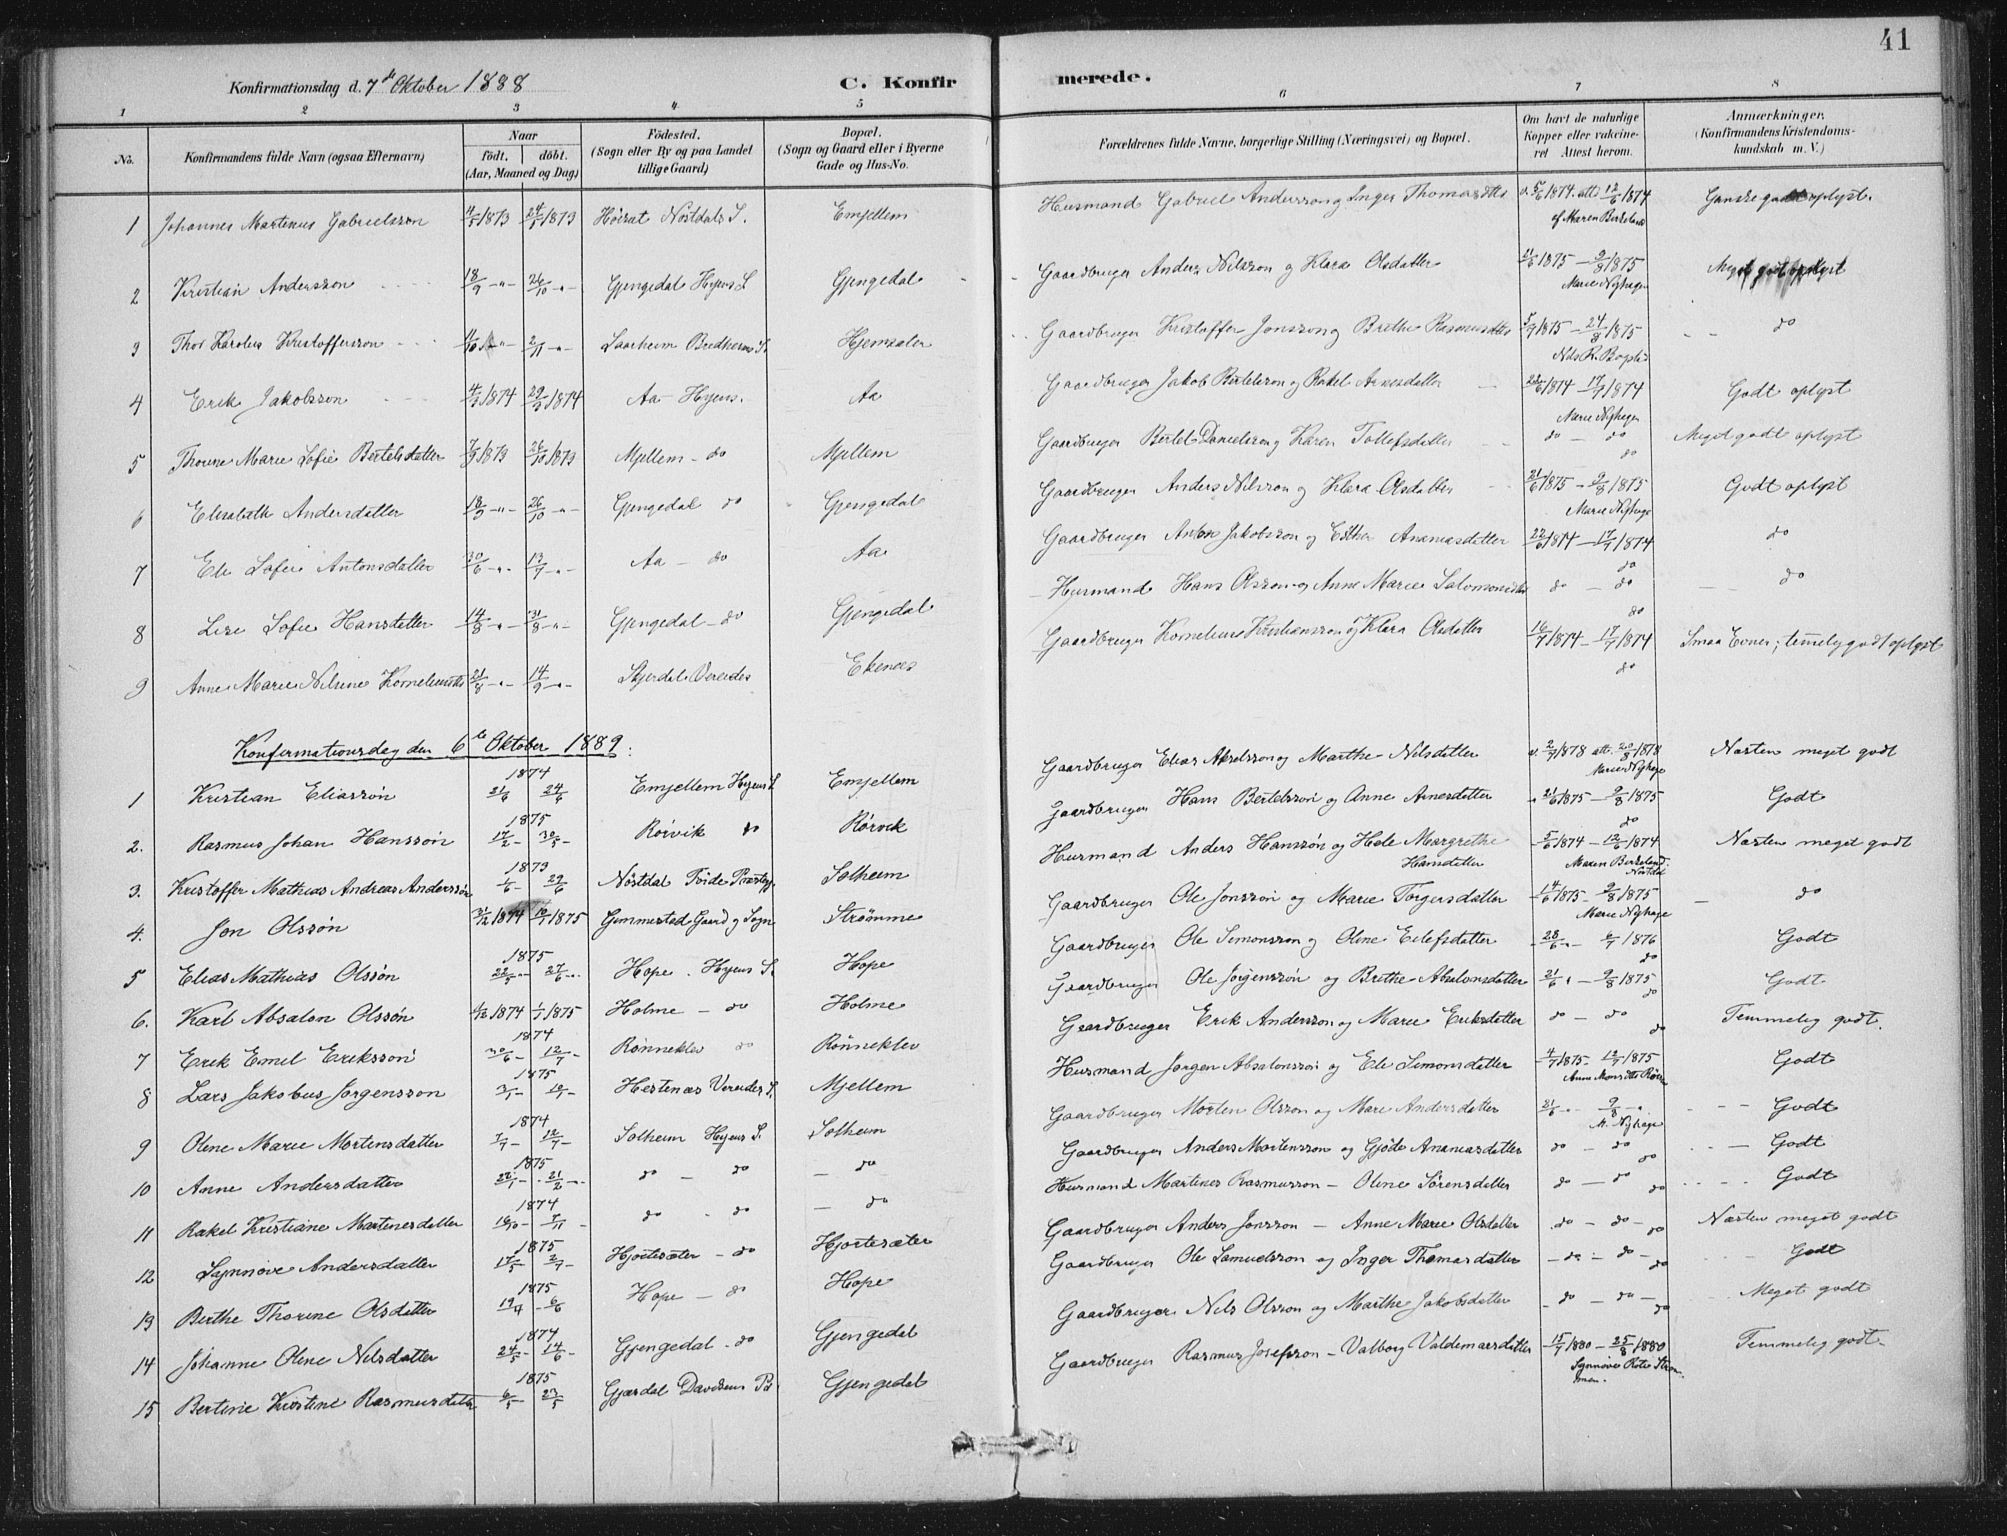 41
Konfirmationsdag d. 7de Oktober 1888 C. Konfirmerede.
1 2 3 4 5 6 7 8
No. Konfirmandens fulde Navn (ogsaa Efternavn) Naar födt. döbt. (Aar, Maaned og Dag) Födested. (Sogn eller By og paa Landet tillige Gaard) Bopæl. (Sogn og Gaard eller i Byerne Gade og Hus-No. Forældrenes fulde Navne, borgerlige Stilling (Næringsvei) og Bopæl. Om havt de naturlige Kopper eller vakcineret Attest herom. Anmærkninger. (Konfirmandens Kristendomskundskab m. V.)
1 Johannes Martinus Gabrielsson 1873 24/5 1873 Nöstdals S. Emjellem Husmand Gabriel Andersson og Inger Thomasdtr v. 5/6 1874 att. 12/6 1874 af Maren Birkeland Ganske godt oplyst.
2 Kristian Andersson 18/9 -"- 26/10 -"- Gjengedal Hyens S. Gjengedal Gaardbruger Anders Nilsson og Klara Olsdatter 21/6 1875 - 9/8 1875 Marie Nyhagen Meget godt oplyst
3 Thor Karolus Kristoffersson 2/11 -"- Laarheim Bredheims S. Hjemsæter Gaardbruger Kristoffer Jonsson og Brethe Rasmusdtr 5/9 1875 - 24/8 1875 Nils R. do
4 Erik Jakobsson 4/9 1874 29/9 1874 Aa - Hyens. Aa Gaardbruger Jakob Bertelsson og Rakel Arnesdatter 22/6 1874 - 17/7 1874 Marie Nyhagen Godt oplyst
5 Thorine Marie Sofie Bertelsdatter 7/9 1873 26/10 1873 Mjellem - do Mjellem Gaardbruger Bertel Danielsson og Karen Tollefsdatter do - do do Meget godt oplyst
6 Elisabeth Andersdatter 18/9 -"- 26/10 -"- Gjengedal do Gjengedal Gaardbruger Anders Nilsson og Klara Olsdatter 21/6 1875 - 9/8 1875 Marie Nyhage Godt oplyst
7 Eli Sofie Antonsdatter 30/6 -"- 13/7 -"- Aa - do Aa Gaardbruger Anton Jakobsson og Esther Ananiasdatter 22/6 1874 - 17/7 1874 do do
8 Lise Sofie Hansdatter 14/8 -"- 31/8 -"- Gjengedal - do Gjengedal Husmand Hans Olsson og Anne Marie Salomonsdtr do - do do do
9 Anne Marie Nilsine Korneliusdtr 21/8 -"- 14/9 -"- Skjerdal Vereides Ekenæs Gaardbruger Kornelius Kristiansson og Klara Olsdatter 16/7 1874 - 17/7 1874 do Smaa Evner; temmelig godt oplyst
Konfirmationsdag den 6te Oktober 1889:
1 Kristian Eliassön 1874 21/6 24/6 Emjellem Hyens S. Emjellem Gaardbruger Elias Akselsson og Marthe Nilsdatter v. 2/7 1878 att. 20/8 1878 Marie Nyhage Næsten meget godt
2. Rasmus Johan Hanssön 1875 17/2 - 30/5 - Rörvik do Rörvik Gaardbruger Hans Bertelssön og Anne Arnesdatter 21/6 1875 - 9/8 1875 do Godt
3. Kristoffer Mathias Andreas Anderssön 1873 1/6 29/6 Nöstdal Solheim Husmand Anders Hanssön og Hele Margrethe Hansdatter 5/6 1874 - 12/6 1874 Maren Birkeland Nöstdal Næsten meget godt
4. Jon Olssön 31/12 1874 10/1 1875 Gimmestad Gaard og Sogn Strömme Gaardbruger Ole Jonssön og Marie Torgersdatter 14/6 1875 - 9/8 1875 Marie Nyhage do
5 Elias Mathias Olssön 1875 22/5 - 27/6 - Hope. Hyens S. Hope Gaardbruger Ole Simonsson og Oline Eilefsdatter 28/6 - 6/7 1876 do Godt
6. Karl Absalon Olssön 1874 1/1 1875 Holme - do Holme Gaardbruger Ole Jörgenssön og Brethe Absalonsdatter 21/6 " - 9/8 1875 do Godt
7 Erik Emil Erikssön 1874 30/6 - 12/7 - Rönneklev do Rönneklev Gaardbruger Erik Andersson og Marie Eriksdatter do - do do Temmelig godt.
8 Lars Jakobus Jörgensson 1875 3/1 - 10/1 - Hestenæs Vereides S. Mjellem Husmand Jörgen Absalonssön og Eli Simonsdatter 4/7 1875 - 12/7 1875 Godt
9 Oline Marie Mortensdatter 1874 7/7 - 12/7 - Solheim Hyens S. Solheim Gaardbruger Morten Olsson og Mari Andersdatter 21/6 - 9/8 -"- M. Nyhage Godt
10 Anne Andersdatter 1875 22/1 - 21/2 - do - do - do Gaardbruger Anders Mortensson og Gjöde Ananiasdatter do - do do Godt
11 Rakel Kristiane Martinesdatter 1874 16/10 - 7/11 - do - do - do Husmand Martines Rasmusson - Oline Sörensdatter do - do do Godt
12 Synnöve Andersdatter 1875 17/5 - 2/7 - Hjortesæter - do Hjortesæter Gaardbruger Anders Jonsson - Anne Marie Olsdatter do - do - do Næsten meget godt
13 Berthe Thorine Olsdatter 1875 19/4 - 6/6 Hope - do Hope Gaardbruger Ole Samuelsson og Inger Thomasdatter - do - do - do Godt
14 Johanne Oline Nilsdatter 1874 24/5 - 14/6 - Gjengedal - do Gjengedal Gaardbruger Nils Olsson og Marthe Jakobsdatter - do - do - do Meget godt
15 Bertine Kristine Rasmusdatter 1875 6/5 23/5 Gjærdal Davikens Gjengedal Gaardbruger Rasmus Josefsson - Valborg Valdemarsdatter 15/7 1880 - 25/8 1880 Synnöve Temmelig godt